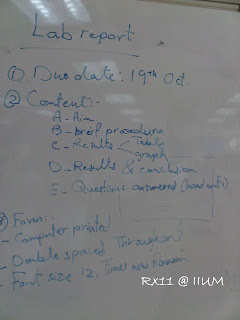 Lab report
① Due date: 19th Oct.
② Content:-
A - Aim
B - brief procedure
C - Results < Table
graph
D - Results & conclusion
E - Questions answered (hand outs)
③ Form:-
- Computer printed
- Double spaced Throughout
- Font size 12, Times new Roman
RX11 @ IIUM